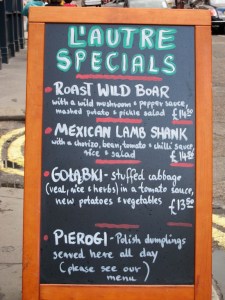 L'AUTRE
SPECIALS
• ROAST WILD BOAR
with a wild mushroom & pepper sauce,
mashed potato & pickle salad £14.50
• MEXICAN LAMB SHANK
with a chorizo, bean, tomato & chilli sauce,
rice & salad £14.50
• GOŁĄBKI - stuffed cabbage
(veal, rice & herbs) in a tomato sauce,
new potatoes & vegetables £13.50
• PIEROGI - Polish dumplings
served here all day
(please see our
menu)